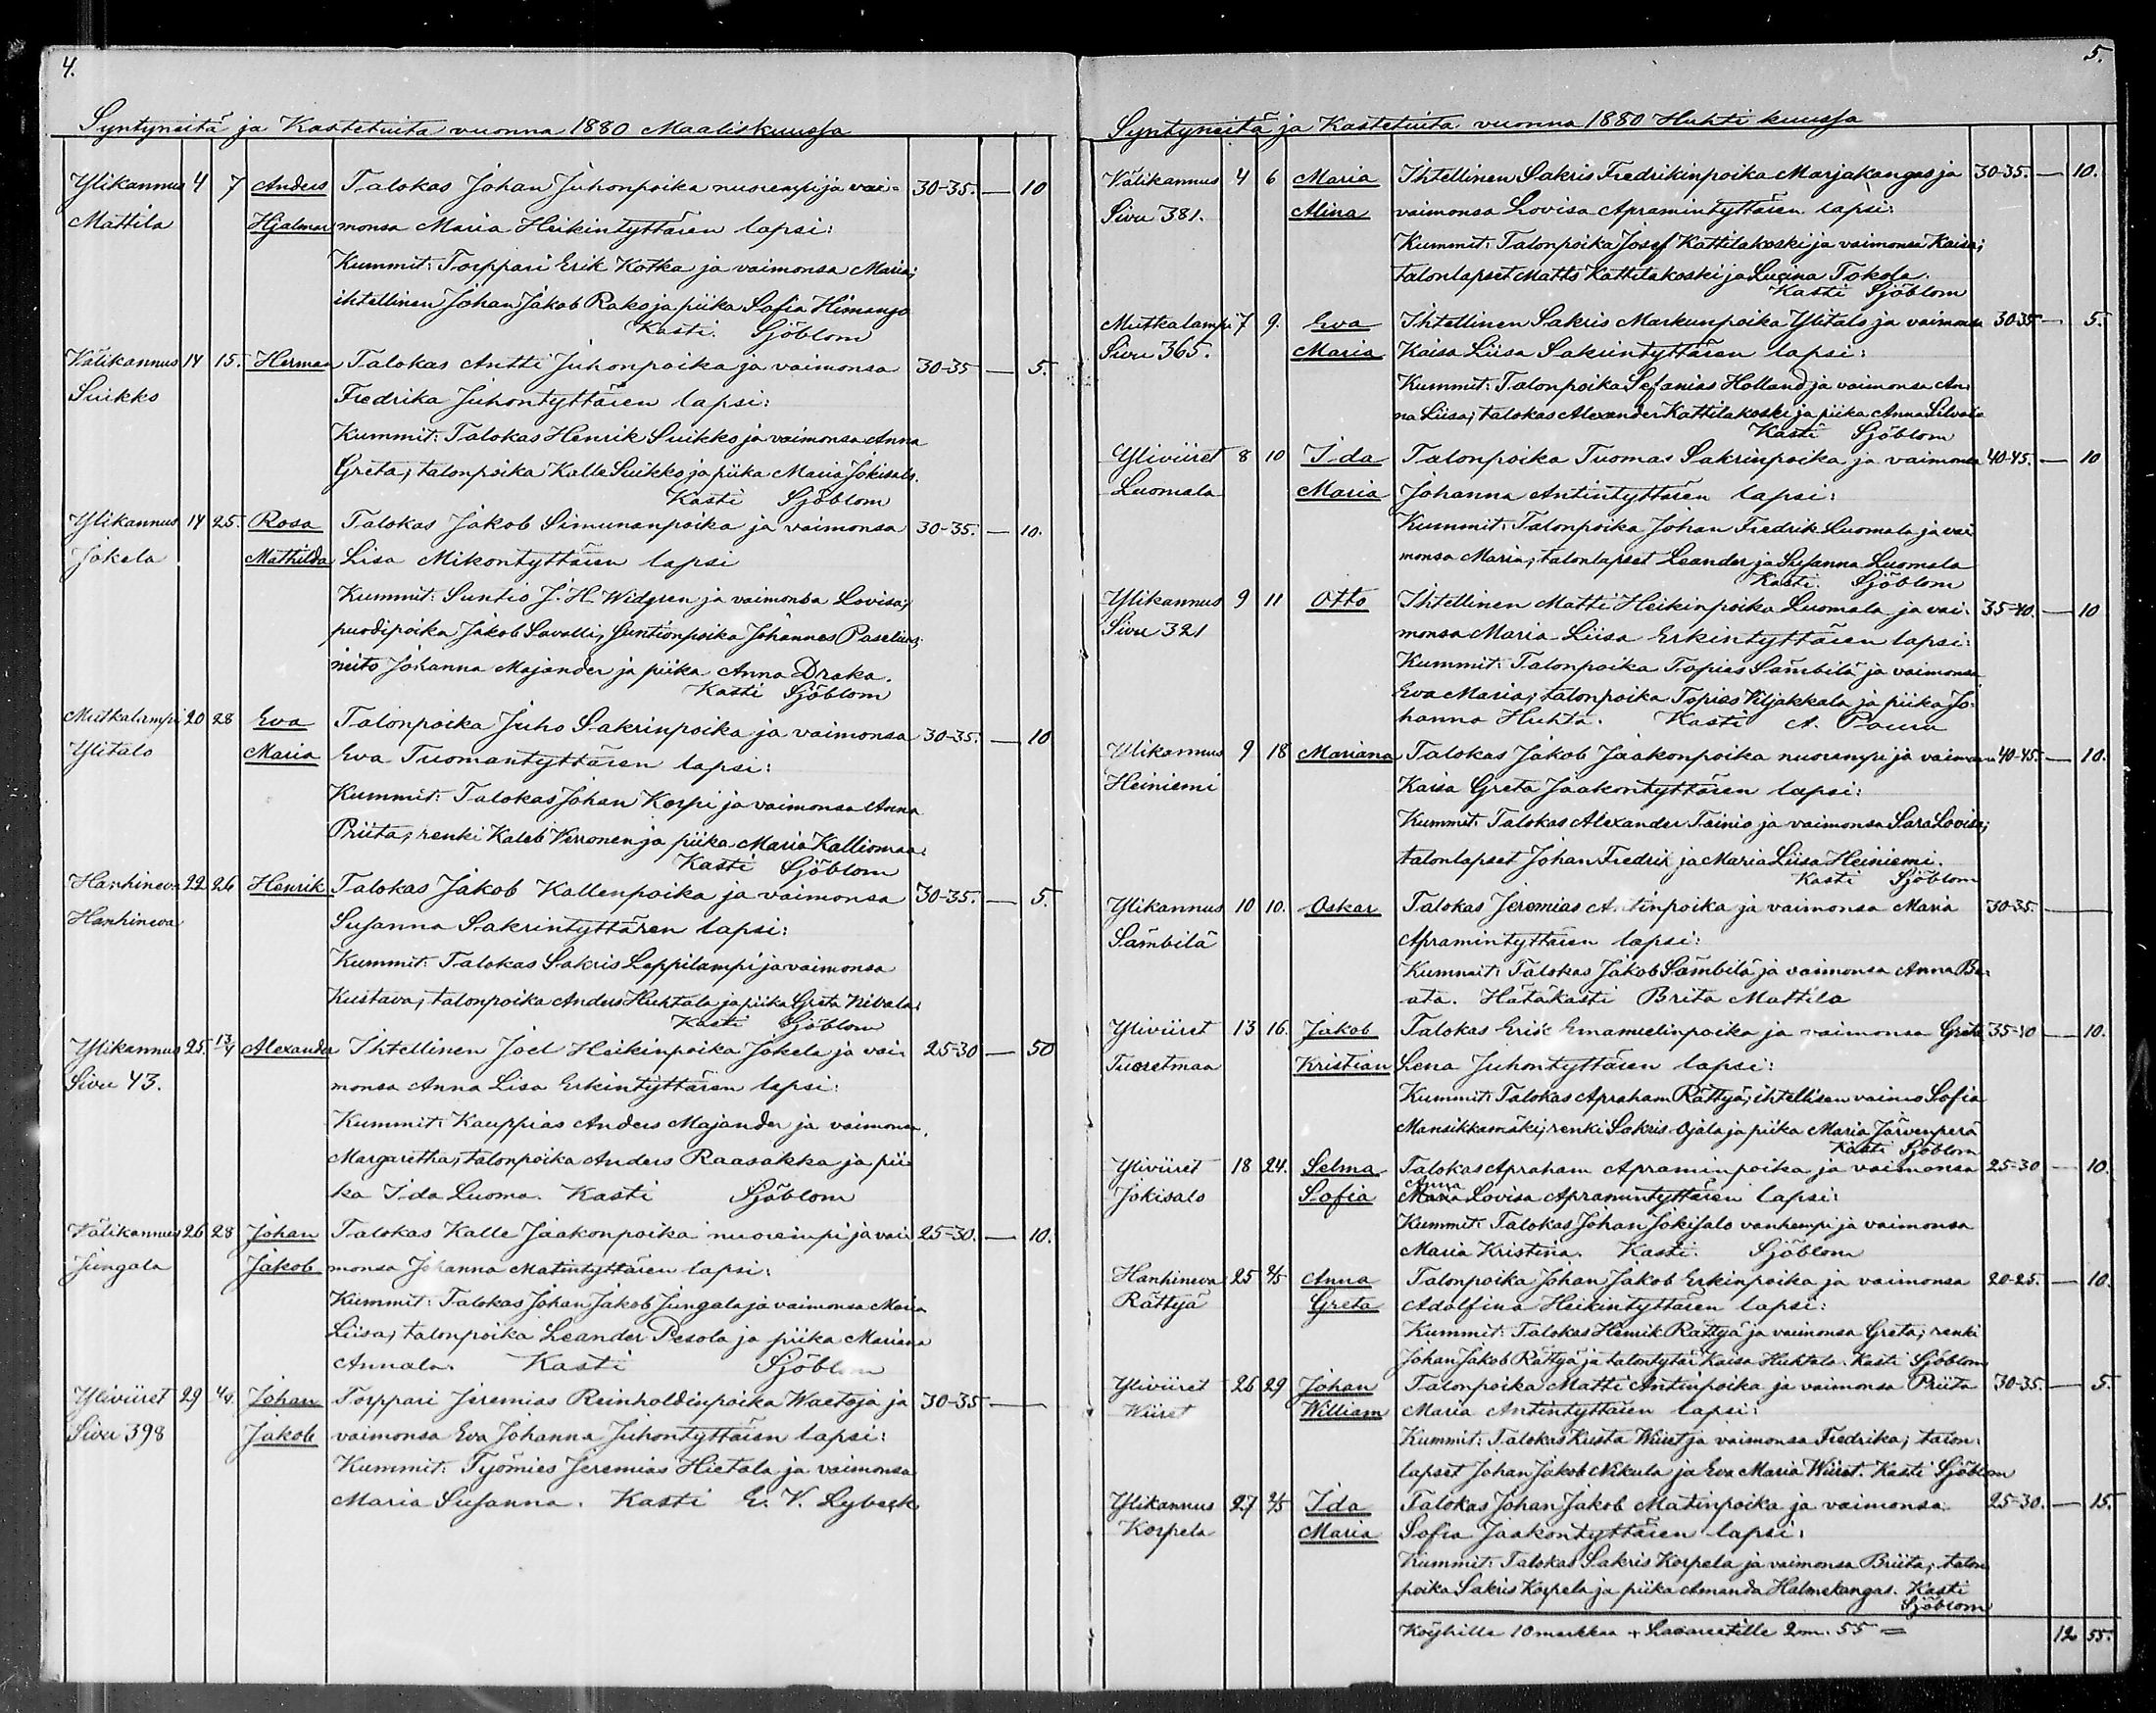 4.
Syntyneitä ja Kastetuita vuonna 1880 Maaliskuussa
Ylikannus 4 7 Anders Talokas Johan Juhonpoika nuorempi ja vai= 30-35. — 10
Mattila Hjalmar monsa Maria Heikintyttären lapsi:
Kummit: Torppari Erik Kotka ja vaimonsa Maria;
ihtellinen Johan Jakob Rako ja piika Sofia Himango
Kasti. Sjöblom
Välikannus 14 15. Herman Talokas Antti Juhonpoika ja vaimonsa 30-35 — 5.
Suikko Fredrika Juhontyttären lapsi:
Kummit: Talokas Henrik Suikko ja vaimonsa Anna
Greta; talonpoika Kalle Suikko ja piika Maria Jokisalo.
Kasti Sjöblom
Ylikannus 14 25. Rosa Talokas Jakob Simunanpoika ja vaimonsa 30-35. — 10.
Jokela Mathilda Lisa Mikontyttären lapsi
Kummit: Suntio J. H. Widgren ja vaimonsa Lovisa;
puodipoika Jakob Savolli, Suntionpoika Johannes
neito Johanna Majander ja piika Anna Draka.
Kasti Sjöblom
Mutkalampi 20 28 Eva Talonpoika Juho Sakrinpoika ja vaimonsa 30-35. — 10
Ylitalo Maria Eva Tuomantyttären lapsi:
Kummit: Talokas Johan Korpi ja vaimonsa Anna
Priita; renki Kaleb Verronen ja piika Maria Kalliomaa.
Kasti Sjöblom
Hanhineva 22 26 Henrik Talokas Jakob Kallenpoika ja vaimonsa 30-35. — 5.
Hanhineva Susanna Sakrintyttären lapsi:
Kummit: Talokas Sakris Leppilampi ja vaimonsa
Kustava; talonpoika Anders Huhtala ja piika Greta Nivala.
Kasti Sjöblom
Ylikannus 25. 13/4 Alexander Ihtellinen Joel Heikinpoika Jokela ja vai- 25-30 — 50
Sivu 43. monsa Anna Lisa Erkintyttären lapsi:
Kummit: Kauppias Anders Majander ja vaimonsa
Margaretha; talonpoika Anders Raasakka ja pii-
ka Ida Luoma. Kasti Sjöblom
Välikannus 26 28 Johan Talokas Kalle Jaakonpoika nuorempi ja vai- 25-30. — 10.
Jungala Jakob monsa Johanna Matintyttären lapsi:
Kummit: Talokas Johan Jakob Jungala ja vaimonsa Maria
Liisa; talonpoika Leander Pesola ja piika Mariana
Annala. Kasti Sjöblom
Yliviiret 29 4/4. Johan Torppari Jeremias Reinholdinpoika Waetoja ja 30-35 —
Sivu 398 Jakob vaimonsa Eva Johanna Juhontyttären lapsi:
Kummit: Työmies Jeremias Hietala ja vaimonsa
Maria Susanna. Kasti E. V. Lybeck
5.
Syntyneitä ja Kastetuita vuonna 1880 Huhti kuussa
Välikannus 4 6 Maria Ihtellinen Sakris Fredrikinpoika Marjakangas ja 30-35. — 10.
Sivu 381. Alina vaimonsa Lovisa Apramintyttären lapsi:
Kummit: Talonpoika Josef Kattilakoski ja vaimonsa Kaisa;
talonlapset Matts Kattilakoski ja Lusina Tokola.
Kasti Sjöblom
Mutkalampi 7 9. Eva Ihtellinen Sakris Markunpoika Ylitalo ja vaimonsa 30-35 — 5.
Sivu 365. Maria Kaisa Liisa Sakrintyttären lapsi:
Kummit: Talonpoika Sefanias Holland ja vaimonsa An-
na Liisa; talokas Alexander Kattilakoski ja piika Anna
Kasti Sjöblom
Yliviiret 8 10 Ida Talonpoika Tuomas Sakrinpoika ja vaimonsa 40-45. — 10
Luomala Maria Johanna Antintyttären lapsi:
Kummit: Talonpoika Johan Fredrik Luomala ja vai
monsa Maria; talonlapset Leander ja Susanna Luomala
Kasti. Sjöblom
Ylikannus 9 11 Otto Ihtellinen Matti Heikinpoika Luomala ja vai- 35-40. — 10
Sivu 321 monsa Maria Liisa Erkintyttären lapsi:
Kummit: Talonpoika Topias Sämbilä ja vaimonsa
Eva Maria; talonpoika Topias Viljakkala ja piika Jo-
hanna Huhta. Kasti A. Pauru
Ylikannus 9 18 Mariana Talokas Jakob Jaakonpoika nuorempi ja vaimonsa 40-45. — 10.
Heiniemi Kaisa Greta Jaakontyttären lapsi:
Kummit: Talokas Alexander Tainio ja vaimonsa Sara Lovisa;
talonlapset Johan Fredrik ja Maria Liisa Heiniemi.
Kasti Sjöblom
Ylikannus 10 10. Oskar Talokas Jeremias Antinpoika ja vaimonsa Maria 30-35. —
Sämbilä Apramintyttären lapsi:
Kummit: Talokas Jakob Sämbilä ja vaimonsa Anna Be-
ata. Hätäkasti Brita Mattila
Yliviiret 13 16. Jakob Talokas Erik Emanuelinpoika ja vaimonsa Greta 35-40 — 10.
Tuoretmaa Kristian Lena Juhontyttären lapsi:
Kummit: Talokas Apraham Rättyä; ihtellisen vaimo Sofia
Mansikkamäki; renki Sakris Ojala ja piika Maria Järvenperä
Kasti Sjöblom
Yliviiret 18 24. Selma Talokas Apraham Apraminpoika ja vaimonsa 25-30 — 10.
Anna
Jokisalo Sofia Maria Lovisa Apramintyttären lapsi:
Kummit: Talokas Johan Jokisalo vanhempi ja vaimonsa
Maria Kristina. Kasti. Sjöblom
Hanhineva 25 2/5 Anna Talonpoika Johan Jakob Erkinpoika ja vaimonsa 20-25. — 10.
Rättyä Greta Adolfina Heikintyttären lapsi:
Kummit: Talokas Henrik Rättyä ja vaimonsa Greta; renki
Johan Jakob Rättyä ja talontytär Kaisa Huhtala. Kasti Sjöblom
Yliviiret 26 29 Johan Talonpoika Matti Antinpoika ja vaimonsa Priita 30-35. — 5.
Wiiret William Maria Antintyttären lapsi:
Kummit: Talokas Kusta Wiiret ja vaimonsa Fredrika; talon-
lapset Johan Jakob Nikula ja Eva Maria Wiiret. Kasti Sjöblom
Ylikannus 27 2/5 Ida Talokas Johan Jakob Matinpoika ja vaimonsa 25-30. — 15.
Korpela Maria Sofia Jaakontyttären lapsi:
Kummit: Talokas Sakris Korpela ja vaimonsa Briita; talon
poika Sakris Korpela ja piika Amanda Halmekangas. Kasti
Sjöblom
Köyhille 10 markkaa + Lasareetille 2 m. 55 = 12 55.